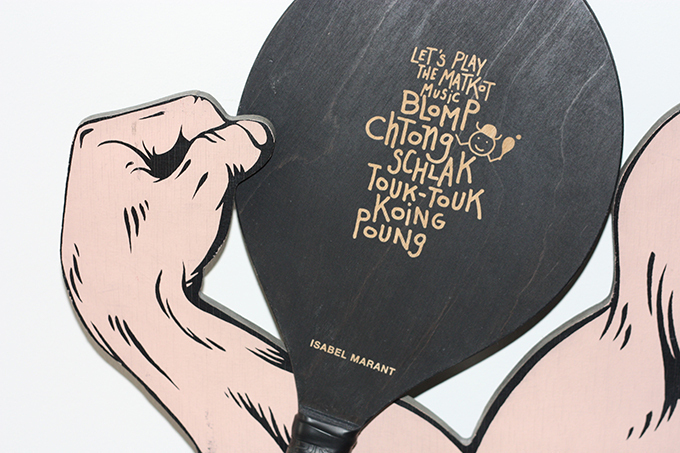 LET'S PLAY
THE MATKOT
MUSIC
BLOMP
CHTONG
SCHLAK
TOUK-TOUK
KOING
POUNG
ISABEL MARANT